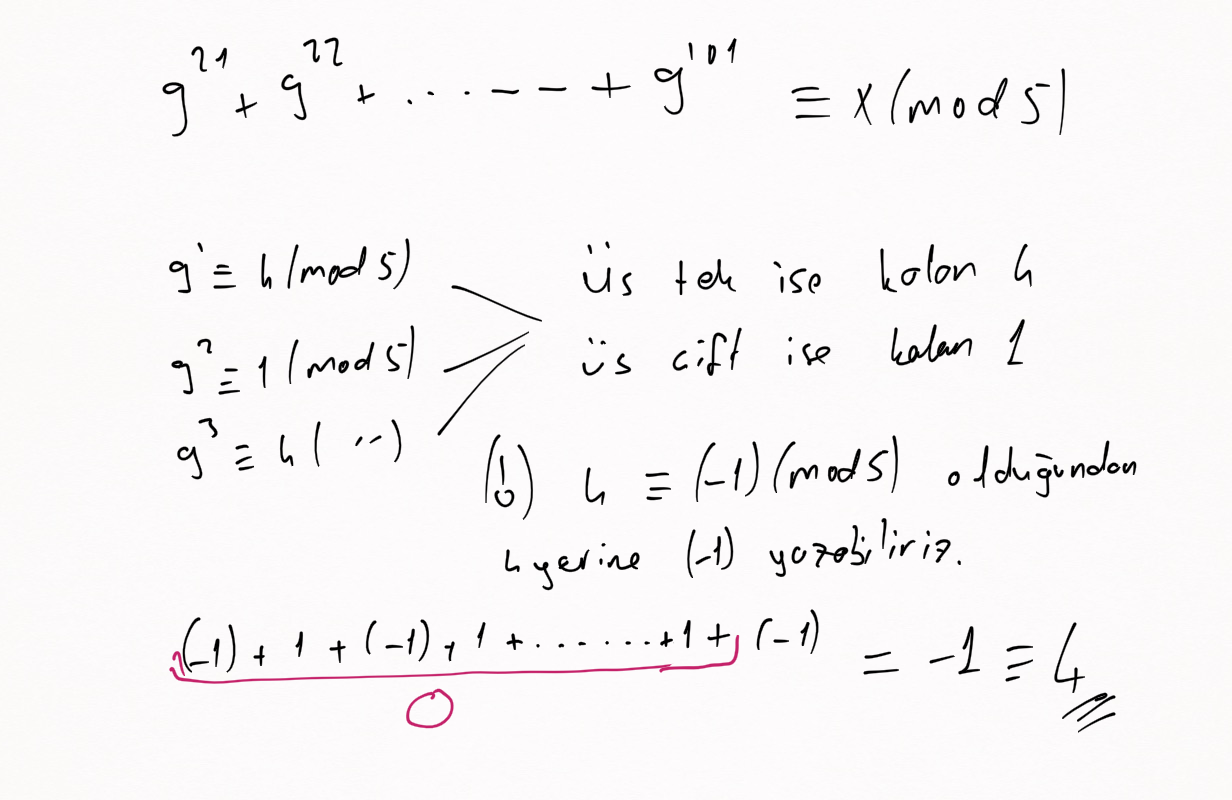 9²¹ + 9²² + ...... --- + 9¹⁰¹ ≡ x (mod 5)
9¹ ≡ 4 (mod 5)
9² ≡ 1 (mod 5)
9³ ≡ 4 ( '' )
üs tek ise kalan 4
üs cift ise kalan 1
(!) 4 ≡ (-1) (mod 5) olduğundan
4 yerine (-1) yazabiliriz.
(-1) + 1 + (-1) + 1 + ....... + 1 + (-1) = -1 ≡ 4
0